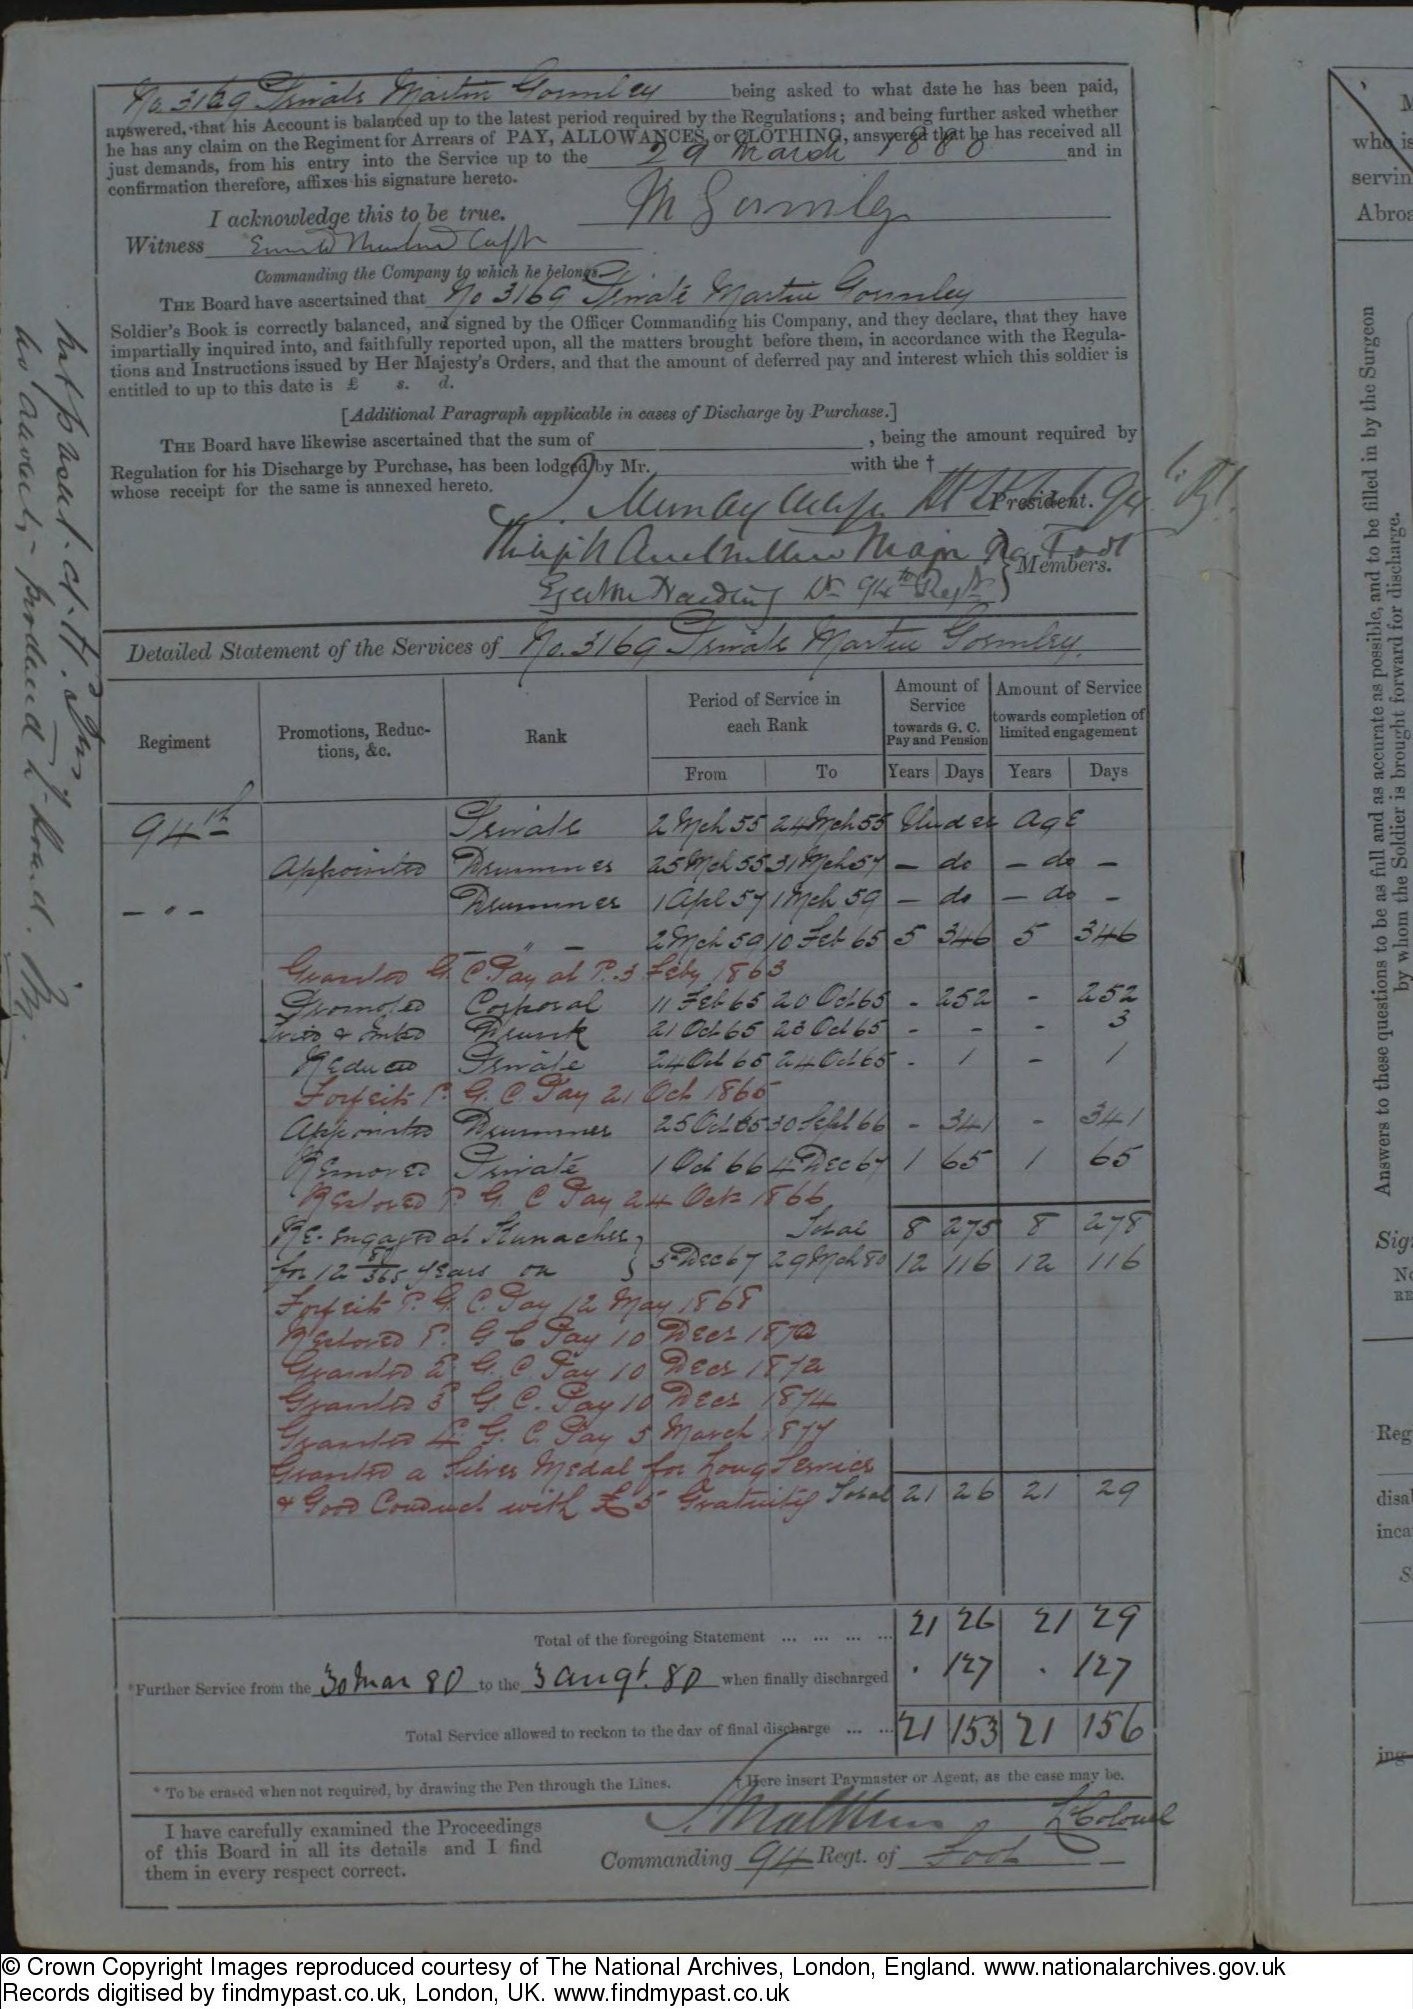 No. 3169 Private Martin Gormley being asked to what date he has been paid,
answered, that his Account is balanced up to the latest period required by the Regulations; and being further asked whether
he has any claim on the Regiment for Arrears of PAY, ALLOWANCES, or CLOTHING, answered that he has received all
just demands, from his entry into the Service up to the 29 March 1880 and in
confirmation therefore, affixes his signature hereto.
I acknowledge this to be true. M Gormley
Witness Capt
Commanding the Company to which he belongs.
THE Board have ascertained that No 3169 Private Martin Gormley
Soldier's Book is correctly balanced, and signed by the Officer Commanding his Company, and they declare, that they have
impartially inquired into, and faithfully reported upon, all the matters brought before them, in accordance with the Regula-
tions and Instructions issued by Her Majesty's Orders, and that the amount of deferred pay and interest which this soldier is
entitled to up to this date is £ s. d.
[Additional Paragraph applicable in cases of Discharge by Purchase.]
THE Board have likewise ascertained that the sum of , being the amount required by
Regulation for his Discharge by Purchase, has been lodged by Mr. with the †
whose receipt for the same is annexed hereto.
Murray President.
Major Foot
Members.
Harding Lt 94th Regt
Detailed Statement of the Services of No. 3169 Private Martin Gormley.
Regiment Promotions, Reduc-tions, &c. Rank Period of Service in each Rank Amount of Service towards G. C. Pay and Pension Amount of Service towards completion of limited engagement
From To Years Days Years Days
94th Private 2 Mch 55 24 Mch 55 Under Age
Appointed Drummer 25 Mch 55 31 Mch 57 – do – do –
– " – Drummer 1 Apl 57 1 Mch 59 – do – do –
– " – 2 Mch 59 10 Feb 65 5 346 5 346
Granted G. C. Pay at P. 3 Feby 1863
Promoted Corporal 11 Feb 65 20 Oct 65 - 252 - 252
Tried & Drunk 21 Oct 65 23 Oct 65 - - - 3
Reduced Private 24 Oct 65 24 Oct 65 - 1 - 1
Forfeits P. G. C Pay 21 Oct 1865
Appointed Drummer 25 Oct 65 30 Sept 66 - 341 - 341
Removed Private 1 Oct 66 4 Dec 67 1 65 1 65
Restored P. G. C Pay 24 Oct 1866
Total 8 275 8 278
Re-engaged at Kurrachee
for 12 years on 5 Dec 67 29 Mch 80 12 116 12 116
Forfeits P. G. C. Pay 12 May 1868
Restored P. G C Pay 10 Decr 1870
Granted 2 P G. C Pay 10 Decr 1872
Granted 3 P G. C. Pay 10 Decr 1874
Granted 4 P G. C. Pay 5 March 1877
Granted a Silver Medal for Long Service
& Good Conduct with £5 Gratuity Total 21 26 21 29
Total of the foregoing Statement ... ... ... ... 21 26 21 29
*Further Service from the 30 Mar 80 to the 3 Augt. 80 when finally discharged . 127 . 127
Total Service allowed to reckon to the day of final discharge ... ... 21 153 21 156
* To be erased when not required, by drawing the Pen through the Lines. † Here insert Paymaster or Agent, as the case may be.
I have carefully examined the Proceedings
of this Board in all its details and I find
them in every respect correct.
Colonel
Commanding 94 Regt. of Foot
who is
servin
Abroa
Answers to these questions to be as full and as accurate as possible, and to be filled in by the Surgeon
by whom the Soldier is brought forward for discharge.
Sig
No
RE
Reg
disa
inca
ing
© Crown Copyright Images reproduced courtesy of The National Archives, London, England. www.nationalarchives.gov.uk
Records digitised by findmypast.co.uk, London, UK. www.findmypast.co.uk